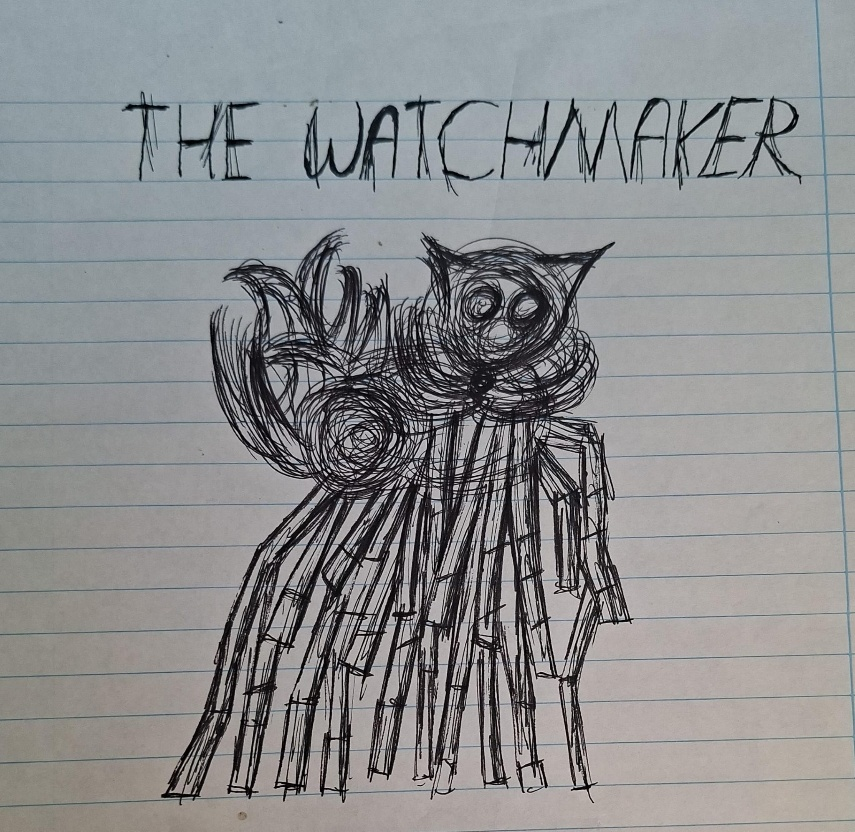 THE WATCHMAKER